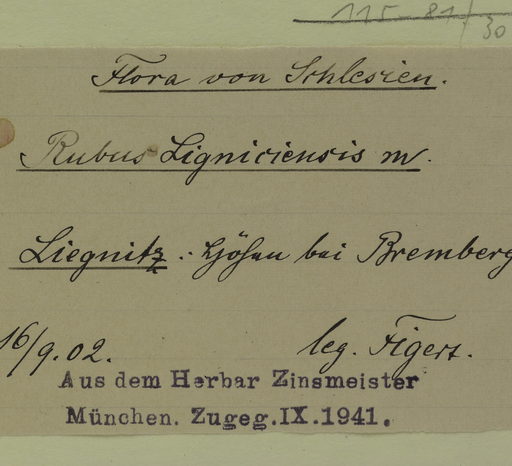 115-81/30
Flora von Schlesien.
Rubus Ligniciensis m.
Liegnitz: Höhen bei Bremberg
16/9.02.
leg. Figert.
Aus dem Herbar Zinsmeister
München. Zugeg.IX.1941.